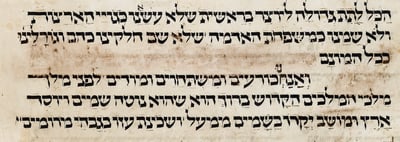 הכל לתת גדולה ליוצר בראשית שלא עשנו כגויי הארצות
ולא שמנו כמשפחות האדמה שלא שם חלקינו כהם וגורלינו
ככל המונם
ואנחנו כורעים ומשתחוים ומודים לפני מלך
מלכי המלכים הקדוש ברוך הוא שהוא נוטה שמים ויוסד
ארץ ומושב יקרו בשמים ממעל ושכינת עוזו בגבהי מרומים